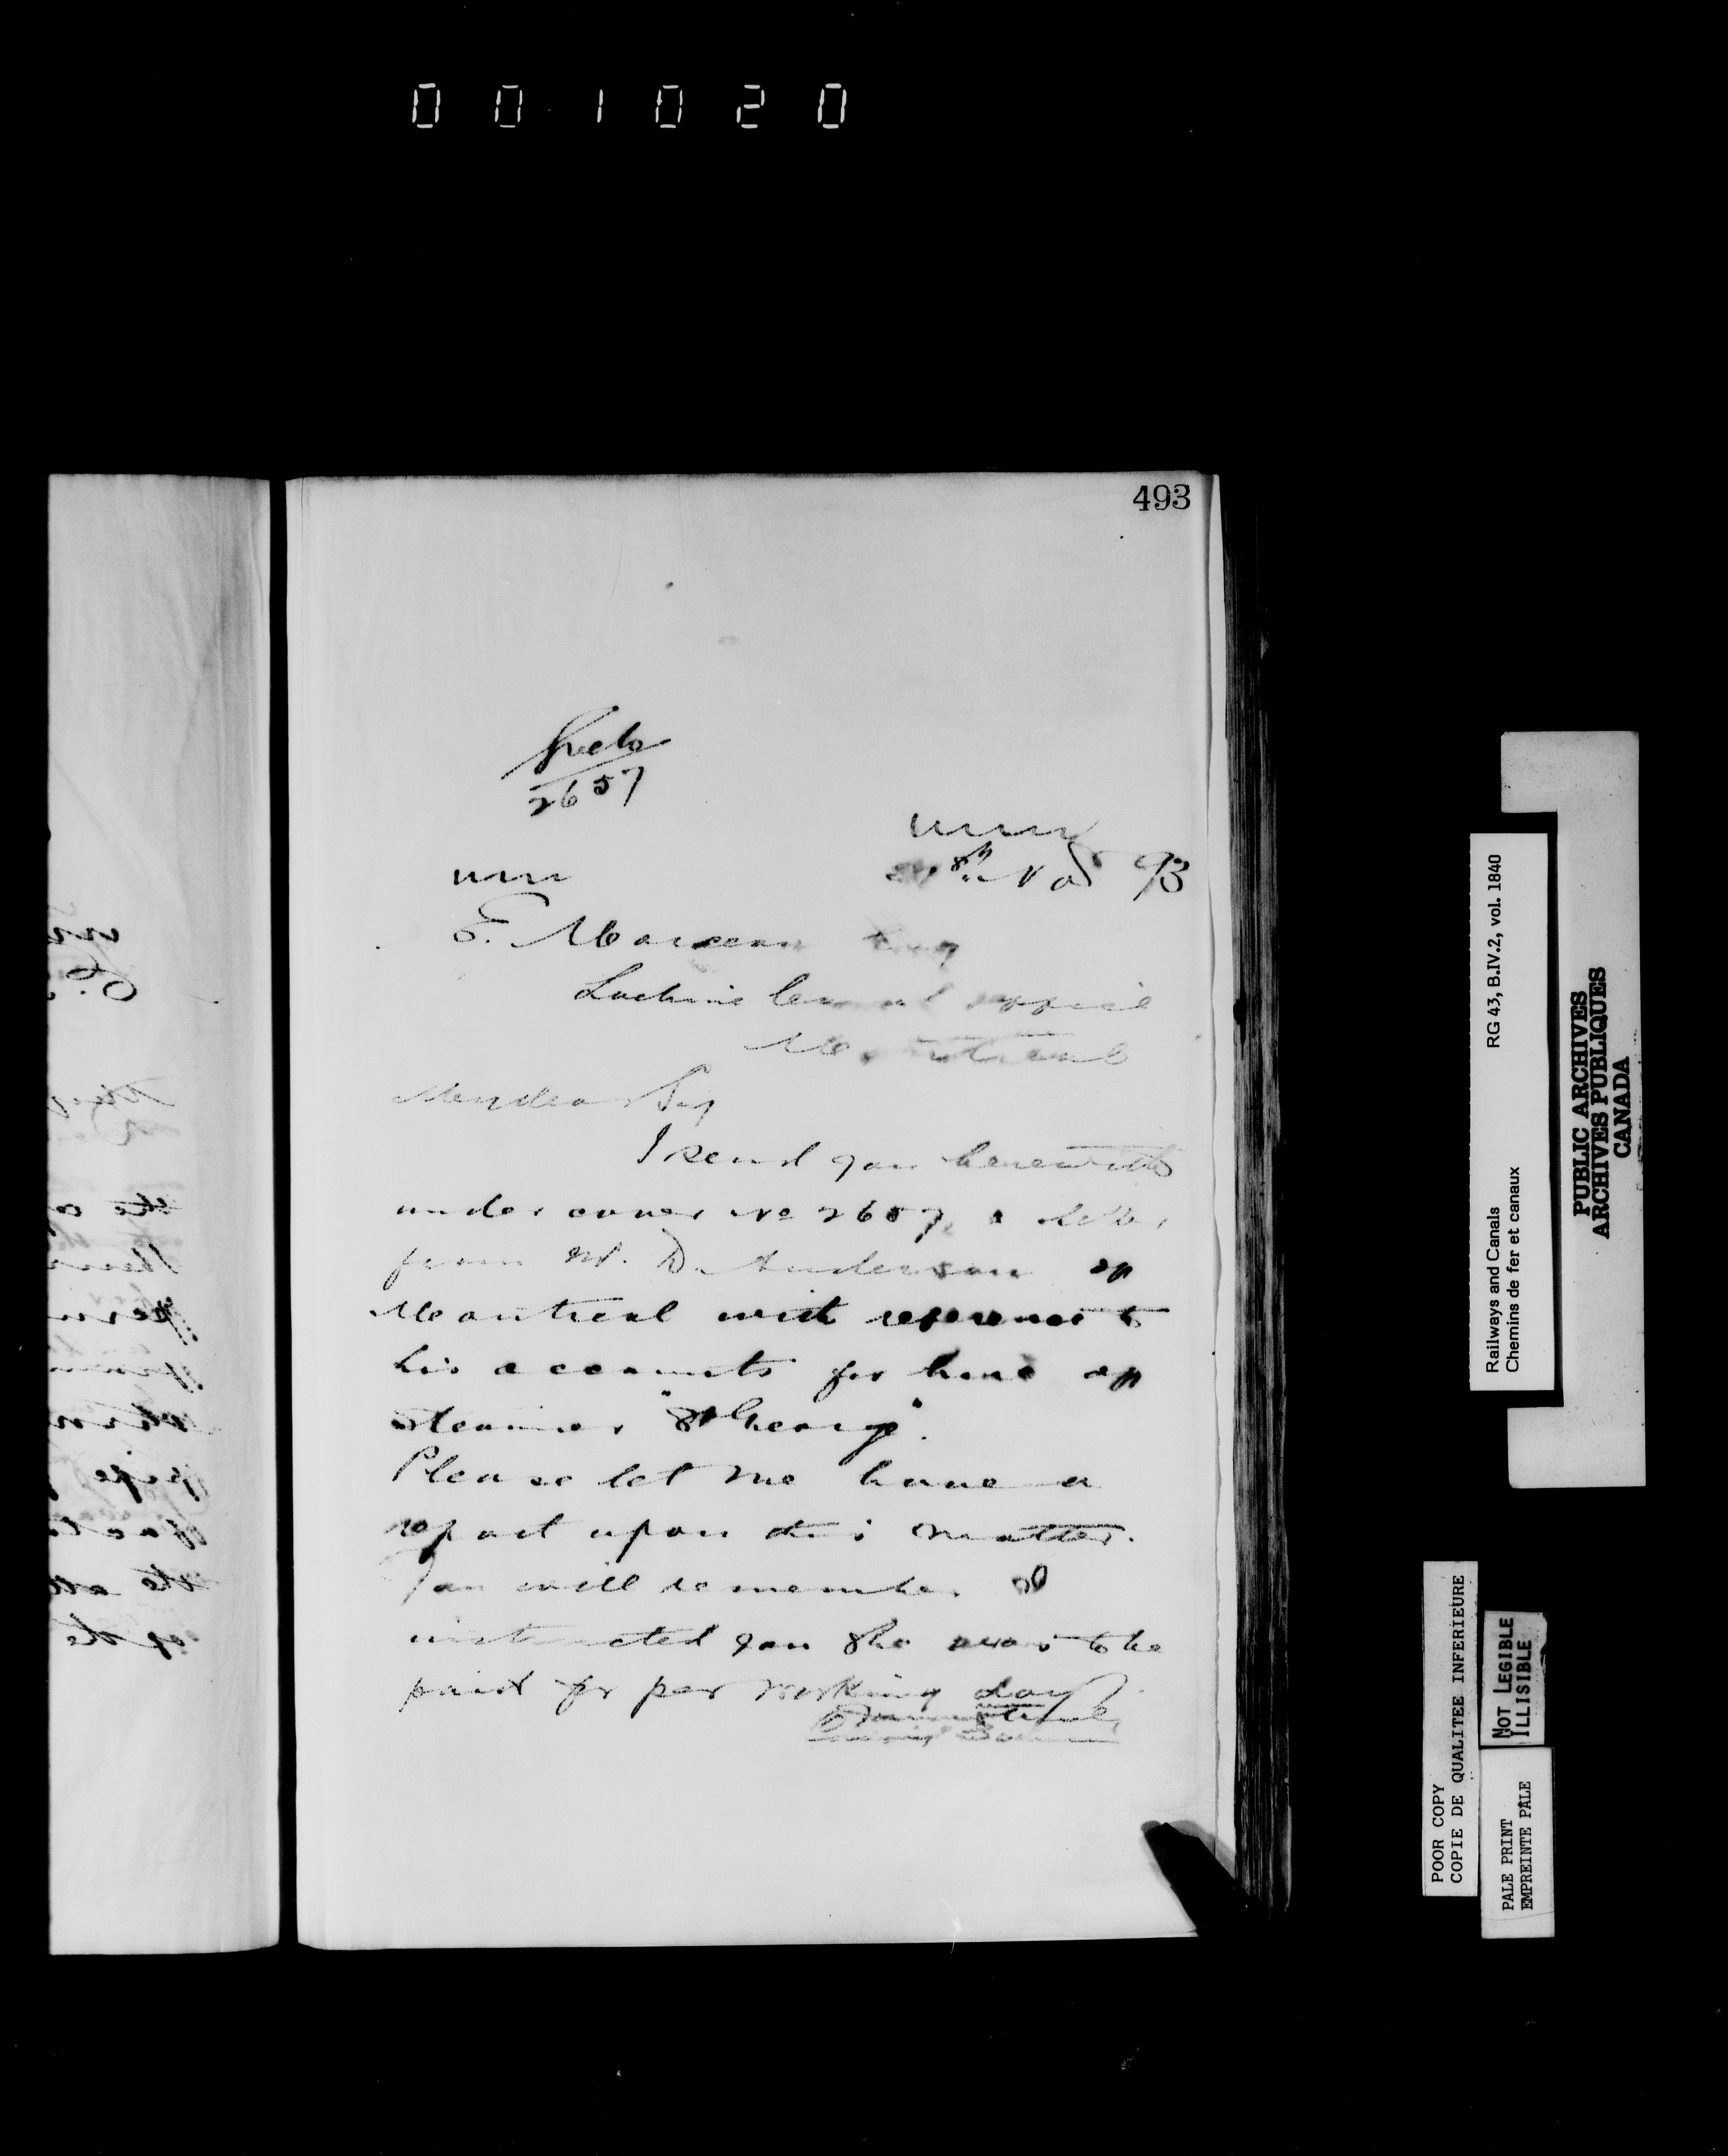 001020
493
2657
8th Nov 93
E. Marceau Esq
Lachine Canal office
Montreal
My dear Sir
I send you herewith
under cover No 2657, a letter
from W. D. Anderson of
Montreal with reference to
his accounts for hire of
steamer "St George".
Please let me have a
report upon this matter.
You will remember I
instructed you she was to be
paid for per working day
Railways and Canals
Chemins de fer et canaux
RG 43, B.IV.2, vol. 1840
PUBLIC ARCHIVES
ARCHIVES PUBLIQUES
CANADA
POOR COPY
COPIE DE QUALITEE INFERIEURE
NOT LEGIBLE
ILLISIBLE
PALE PRINT
EMPREINTE PÂLE